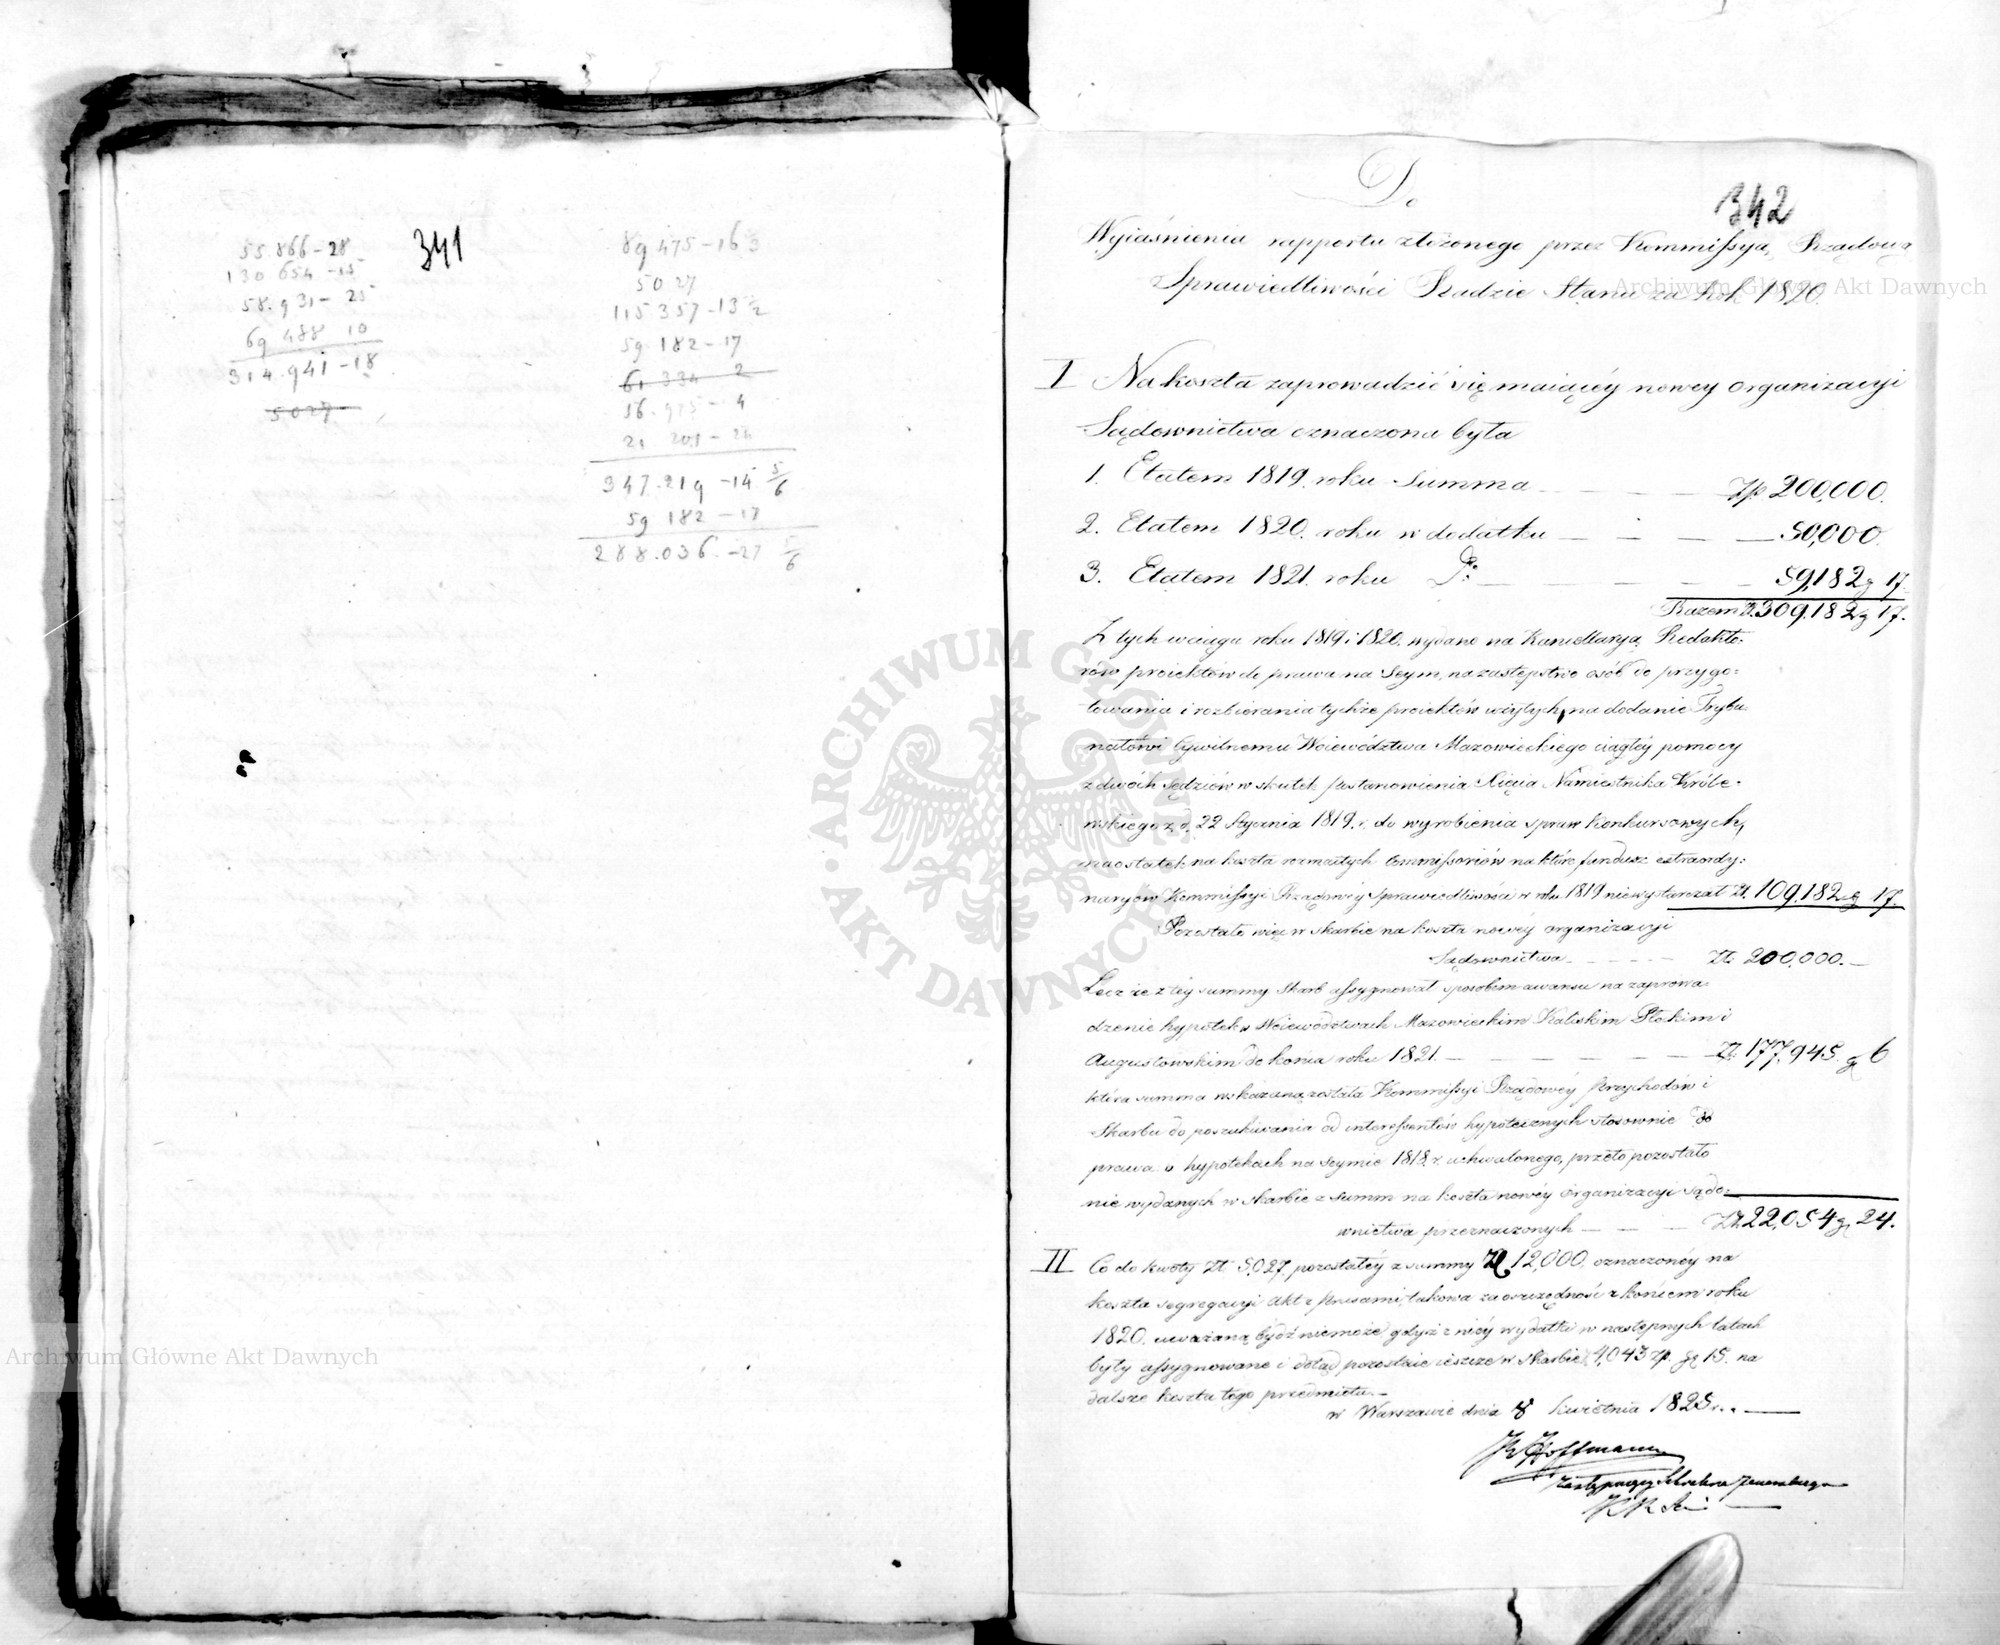 341
55.866-28
130 654-15
58.931-25
69 488 10
314.941-18
5027
89 475-16
5027
115 357-13 1/2
59 182-17
61 334 2
56.975-4
21 201-24
347.219-14 5/6
59 182-17
288.036.-27 5/6
342
Do
Wyiaśnienia rapportu złożonego przez Kommissyą Rządową
Sprawiedliwości Radzie Stanu za Rok 1820.
I Na koszta zaprowadzić się maiącéy nowey organizacyi
Sądownictwa oznaczona była
1. Etatem 1819. roku Summa Zp 200,000.
2. Etatem 1820. roku w dodatku 50,000.
3. Etatem 1821. roku Do 59,182 g 17.
Razem Zł. 309,182 g 17.
Z tych wciągu roku 1819 i 1820. wydano na Kancellaryą Redakto-
rów proiektów do prawa na Seym, na zastępstwo osób do przygo-
towania i rozbierania tychże proiektów wziętych, na dodanie Trybu-
nałowi Cywilnemu Woiewództwa Mazowieckiego ciągłéy pomocy
z dwóch Sędziów w skutek postanowienia Xięcia Namiestnika Króle-
wskiego z d. 22 Stycznia 1819. r. do wyrobienia spraw Konkursowych,
naostatek na koszta rozmaitych Commissoriów na które fundusz extraordy-
naryów Kommissyi Rządowéy Sprawiedliwości w roku 1819 niewystarczał Zł. 109,182 g 17.
Pozostało więc w skarbie na koszta nowéy organizacyi
Sądownictwa Zł 200,000.
Lecz że z téy summy Skarb assygnował sposobem awansu na zaprowa-
dzenie hypotek w Woiewództwach Mazowieckim Kaliskim Płockim i
Augustowskim do końca roku 1821. Zł. 177,945. g 6
która summa wskazaną została Kommissyi Rządowéy Przychodów i
Skarbu do poszukiwania od interessentów hypotecznych stosownie do
prawa o hypotekach na Seymie 1818. r. uchwalonego, przeto pozostało
nie wydanych w skarbie z summ na koszta nowéy organizacyi sądo-
wnictwa przeznaczonych Zł. 22,054 g 24.
II Co do kwoty Zł 5,027. pozostałéy z summy Zł 12,000. oznaczonéy na
koszta segregacyi akt z Prusami, takowa za oszczędność z końcem roku
1820. uważaną bydź niemoże gdyż z niéy wydatki w następnych latach
były assygnowane i dotąd pozostaie ieszcze w Skarbie 4,043 Zp. g 15. na
dalsze koszta tego przedmiotu.
w Warszawie dnia 8 Kwietnia 1825 r.
Hoffmann
Zastępuiący Sekretarza Jeneralnego
Archiwum Główne Akt Dawnych
Archiwum Główne Akt Dawnych
· ARCHIWUM GŁÓWNE · AKT DAWNYCH